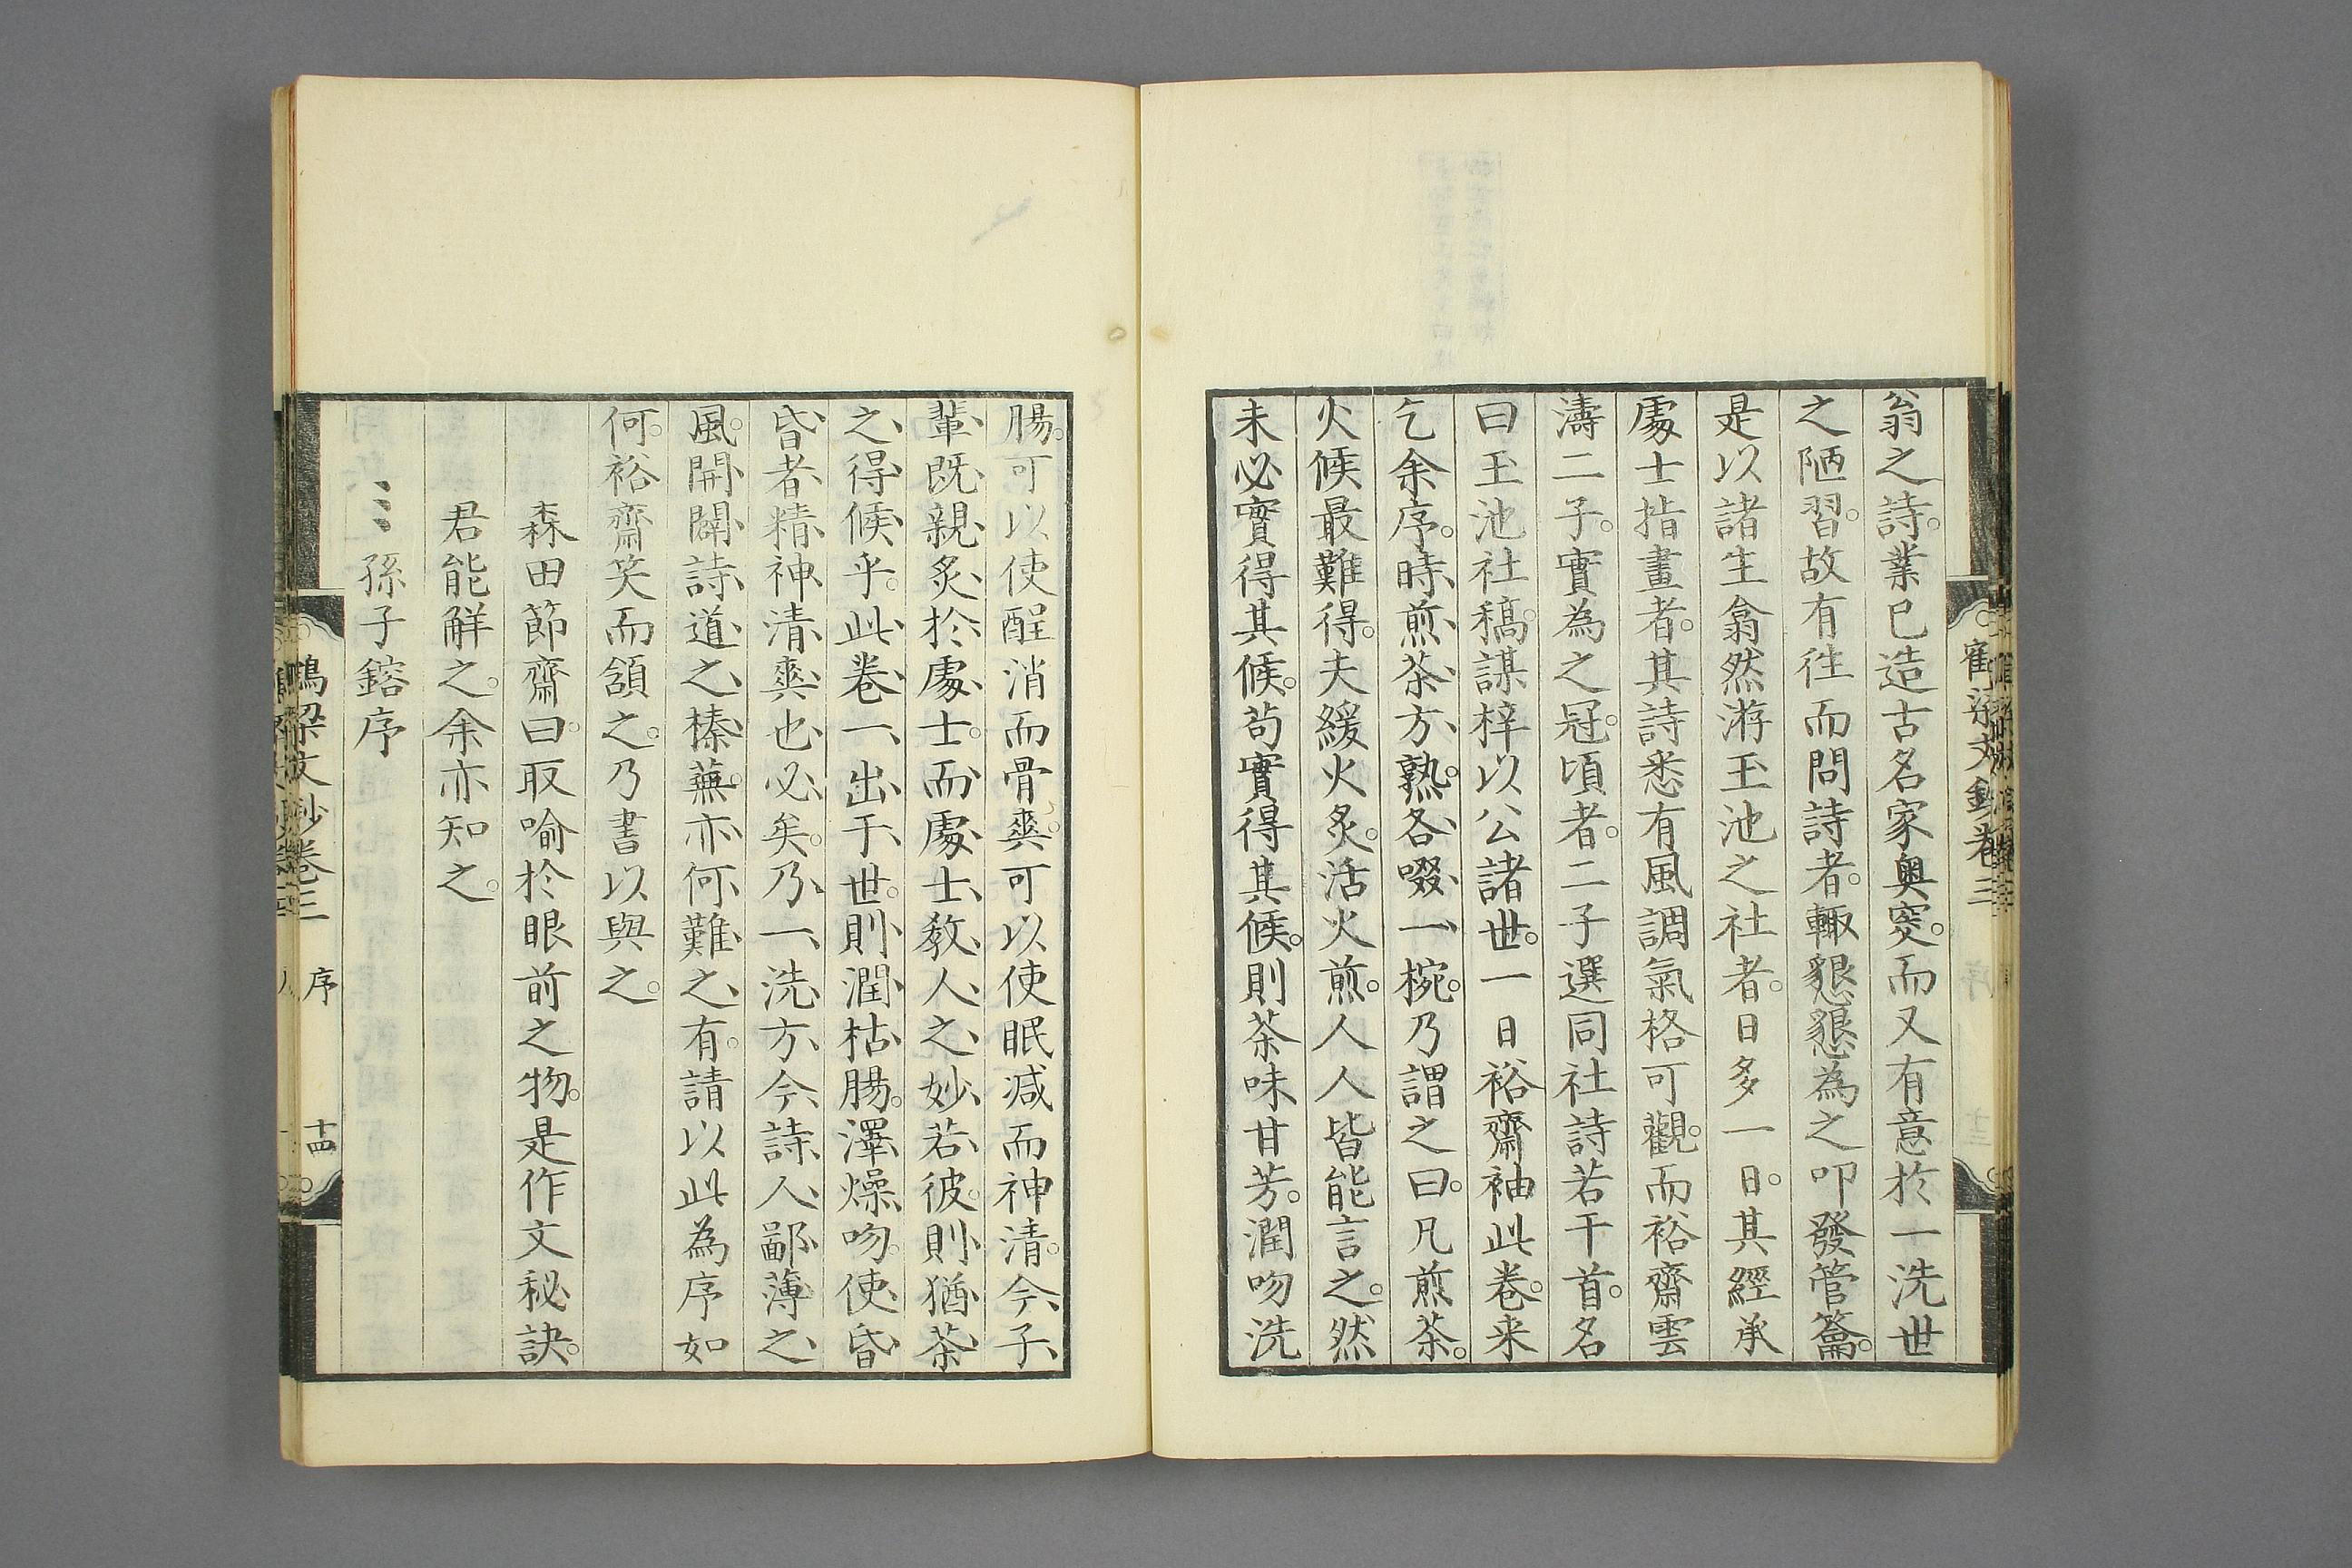 翁之詩。業已造古名家奥窔。而又有意於一洗世
之陋習。故有徃而問詩者。輙懇懇為之叩發管籥。
是以諸生翕然游玉池之社者。日多一日。其經承
處士指畫者。其詩悉有風調氣格可觀。而裕齋雲
濤二子。實為之冠。頃者。二子選同社詩若干首。名
曰玉池社稿。謀梓以公諸世。一日裕齋袖此卷。来
乞余序。時煎茶方熟。各啜一椀。乃謂之曰。凡煎茶。
火候最難得。夫緩火炙。活火煎。人人皆能言之。然
未必實得其候。苟實得其候。則茶味甘芳。潤吻洗
腸。可以使酲消而骨爽。可以使眠减而神清。今子
輩既親炙於處士。而處士教人之妙若彼。則猶茶
之得候乎。此卷一出于世。則潤枯腸。澤燥吻。使昏
昏者精神清爽也必矣。乃一洗方今詩人鄙薄之
風。開闢詩道之榛蕪。亦何難之有。請以此為序如
何。裕齋笑而頷之。乃書以與之。
森田節齋曰。取喻於眼前之物。是作文秘訣。
君能解之。余亦知之。
孫子鎔序
鴨梁文鈔卷三 序 十四